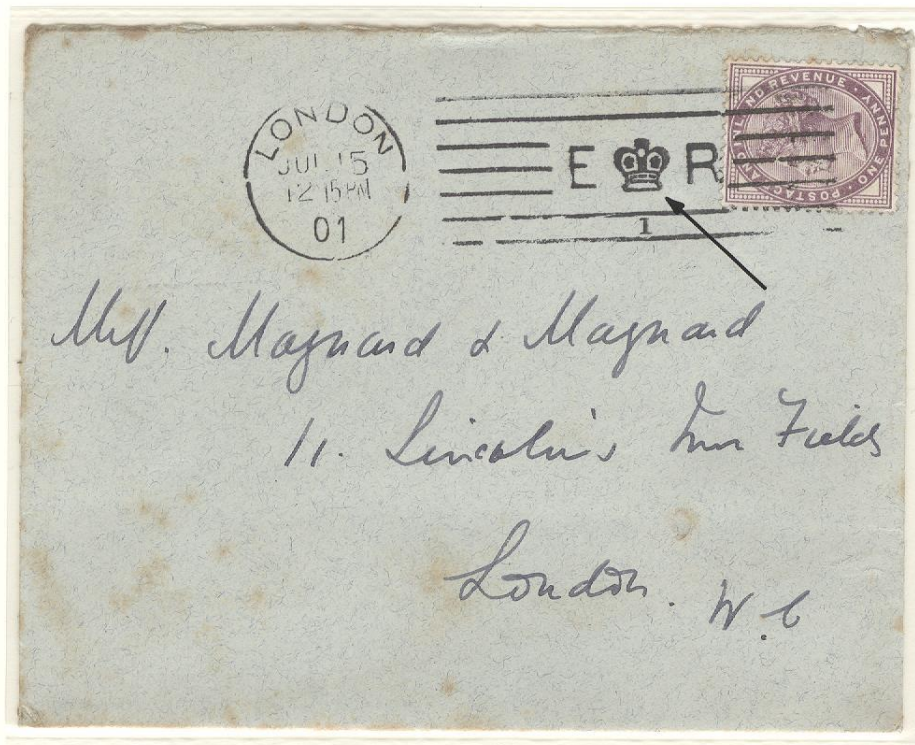 LONDON
JUL 15
12 15 PM
01
E R
1
POSTAGE AND INLAND REVENUE · ONE PENNY ·
Messrs. Maynard & Maynard
11. Lincoln's Inn Fields
London. W.C